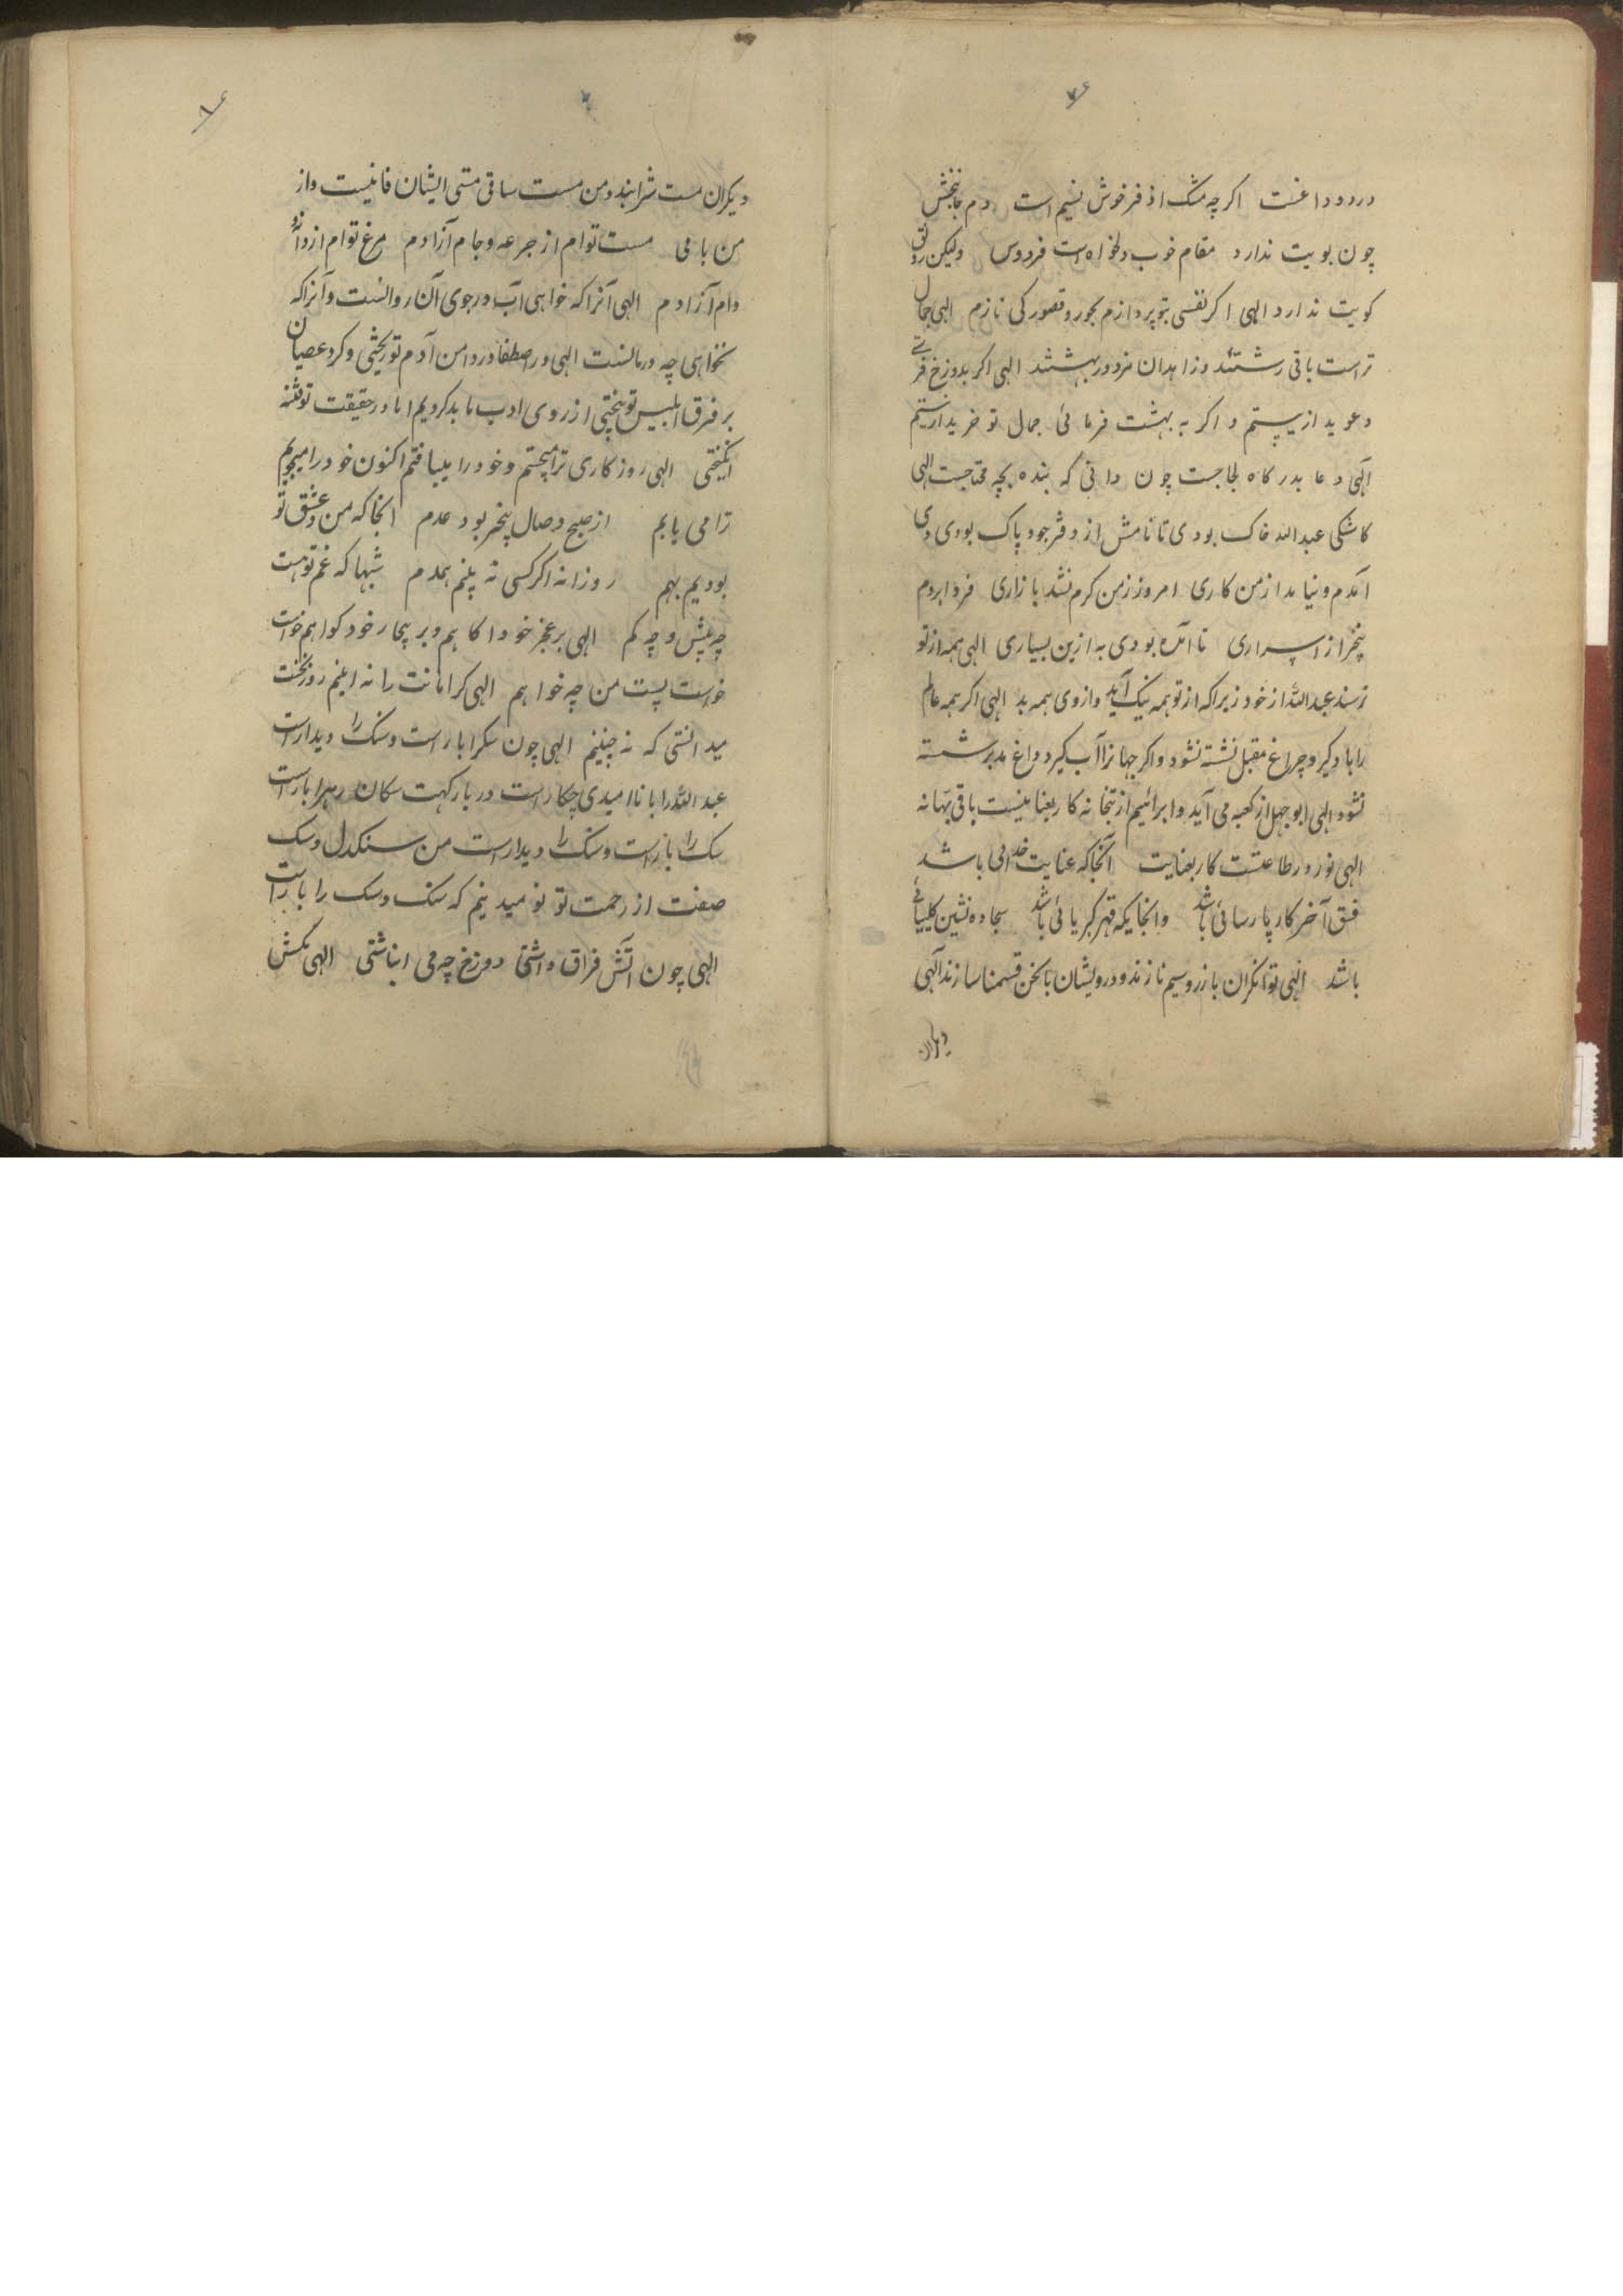 ۷۶
درد و داغست اکرچه مشک اذفر خوش نسیم است دم جانبخش
چون بویت ندارد مقام خوب و دلخواه است فردوس ولیکن رونق
کویت ندارد الهی اکر نفسی بتو پردازم بحور و قصور کی نازم الهی جمال
تراست باقی زشتند و زاهدان مزدور بهشتند الهی اکر بدوزخ فرستی
دعوی دار نیستم و اکر به بهشت فرمائی جمال تو خریدار نیستم
الهی دعا بدرکاه لجاجت چون دانی که بنده بچه محتاجست الهی
کاشکی عبدالله خاک بودی تا نامش از دفتر وجود پاک بودی دی
آمدم و نیامد از من کاری امروز زمن کرم نشد بازاری فردا بروم
بیخبر از اسراری نا آمده بودی به ازین بسیاری الهی همه از تو
ترسند عبدالله از خود زیرا که از تو همه نیک آید و از وی همه بد الهی اکر همه عالم
را باد کیرد چراغ مقبل کشته نشود و اکر جهانرا آب کیرد داغ مدبر شسته
نشود الهی ابوجهل از کعبه می آید و ابراهیم از بتخانه کار بعنایتست باقی بهانه
الهی نور در طاعتست کار بعنایت آنجا که عنایت خدائی باشد
فسق آخر کار پارسائی باشد و انجایکه قهر کبریائی باشد سجاده نشین کلیسیائی
باشد الهی توانکران با زر و سیم نازند و درویشان با نحن قسمنا سازند الهی
دیکران
۸۶
دیکران مست شرابند و من مست ساقی مستی ایشان فانیست و از
من باقی مست توام از جرعه و جام آزادم مرغ توام از دانه و
دام آزادم الهی آنرا که خواهی آب در جوی آن روانست و آنرا که
نخواهی چه درمانست الهی در اصطفا در دامن آدم تو ریختی و کرد عصیان
بر فرق ابلیس تو بیختی از روی ادب ما بد کردیم اما در حقیقت تو فتنه
انکیختی الهی روزکاری ترا میجستم و خود را مییافتم اکنون خود را میجویم
ترا می یابم از صبح وصال بیخبر بود عدم آنجا که من و عشق تو
بودیم بهم روزانه اکر کسی نه بینم همدم شبها که غم تو هست
چه بیش و چه کم الهی بر عجز خود آکاهم و بر بیچارکی خود کواهم خواست
خواست تست من چه خواهم الهی کر امانت را نه امینم روز نخست
میدانستی که نه چنینم الهی چون سکرا بار است و سنک را دیدار است
عبدالله را با ناامیدی چکار است در بارکهت سکان رهرا بار است
سک را بار است و سنک را دیدار است من سنکدل و سک
صفت از رحمت تو نومید نیم که سنک و سک را بار است
الهی چون آتش فراق داشتی دوزخ چه می انباشتی الهی مکش